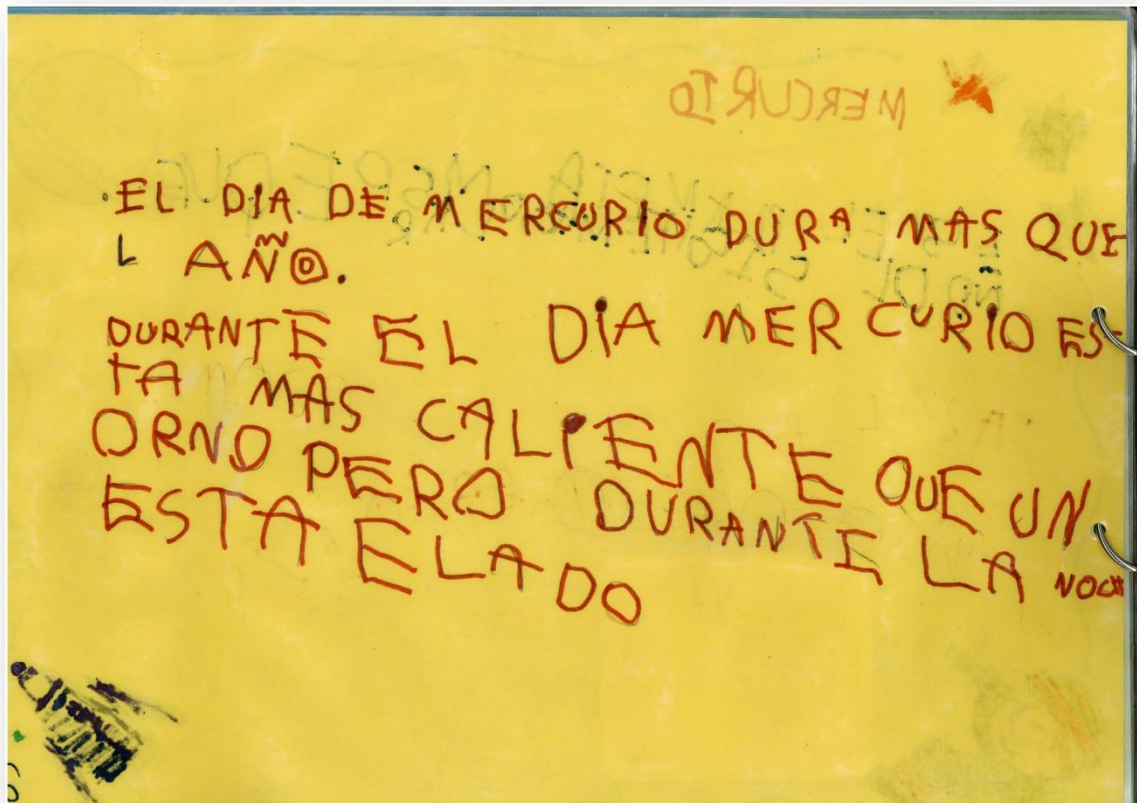 MERCURIO
EL DIA DE MERCURIO DURA MAS QUE
L AÑO.
DURANTE EL DIA MERCURIO ES-
TA MAS CALIENTE QUE UN
ORNO PERO DURANTE LA NOCH
ESTA ELADO